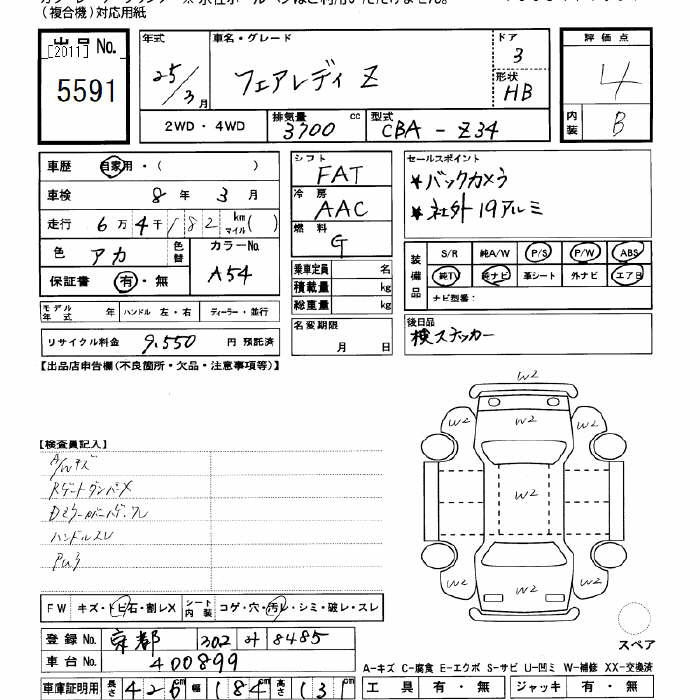 (複合機)対応用紙
出品No.
[2011]
5591
年式
25/3月
車名・グレード
フェアレディ Z
ドア
3
形状
HB
評価点
4
内装
B
2WD・4WD
排気量
3700 cc
型式
CBA - Z34
車歴 自家用・( )
車検 8年 3月
走行 6万4千182 km マイル( )
色 アカ 色替
カラーNo.
A54
保証書 有・無
モデル年式 年 ハンドル 左・右 ディーラー・並行
リサイクル料金 9,550 円 預託済
シフト
FAT
冷房
AAC
燃料
G
乗車定員 名
積載量 kg
総重量 kg
名変期限
月 日
セールスポイント
★バックカメラ
★社外19アルミ
装備品
S/R 純A/W P/S P/W ABS
純TV 純ナビ 革シート 外ナビ エアB
ナビ型番:
後日品
検ステッカー
【出品店申告欄(不良箇所・欠品・注意事項等)】
【検査員記入】
A/Wキズ
ハンドルスレ
W2
W2 W2 W2
W2
W2 W2 W2
FW キズ・トビ石・割レX シート内装 コゲ・穴・汚レ・シミ・破レ・スレ
登録No. 京都 302 み 8485
車台No. 400899
車庫証明用 長さ 426cm 幅 184cm 高さ 131cm
スペア
A-キズ C-腐食 E-エクボ S-サビ U-凹ミ W-補修 XX-交換済
工具 有・無 ジャッキ 有・無